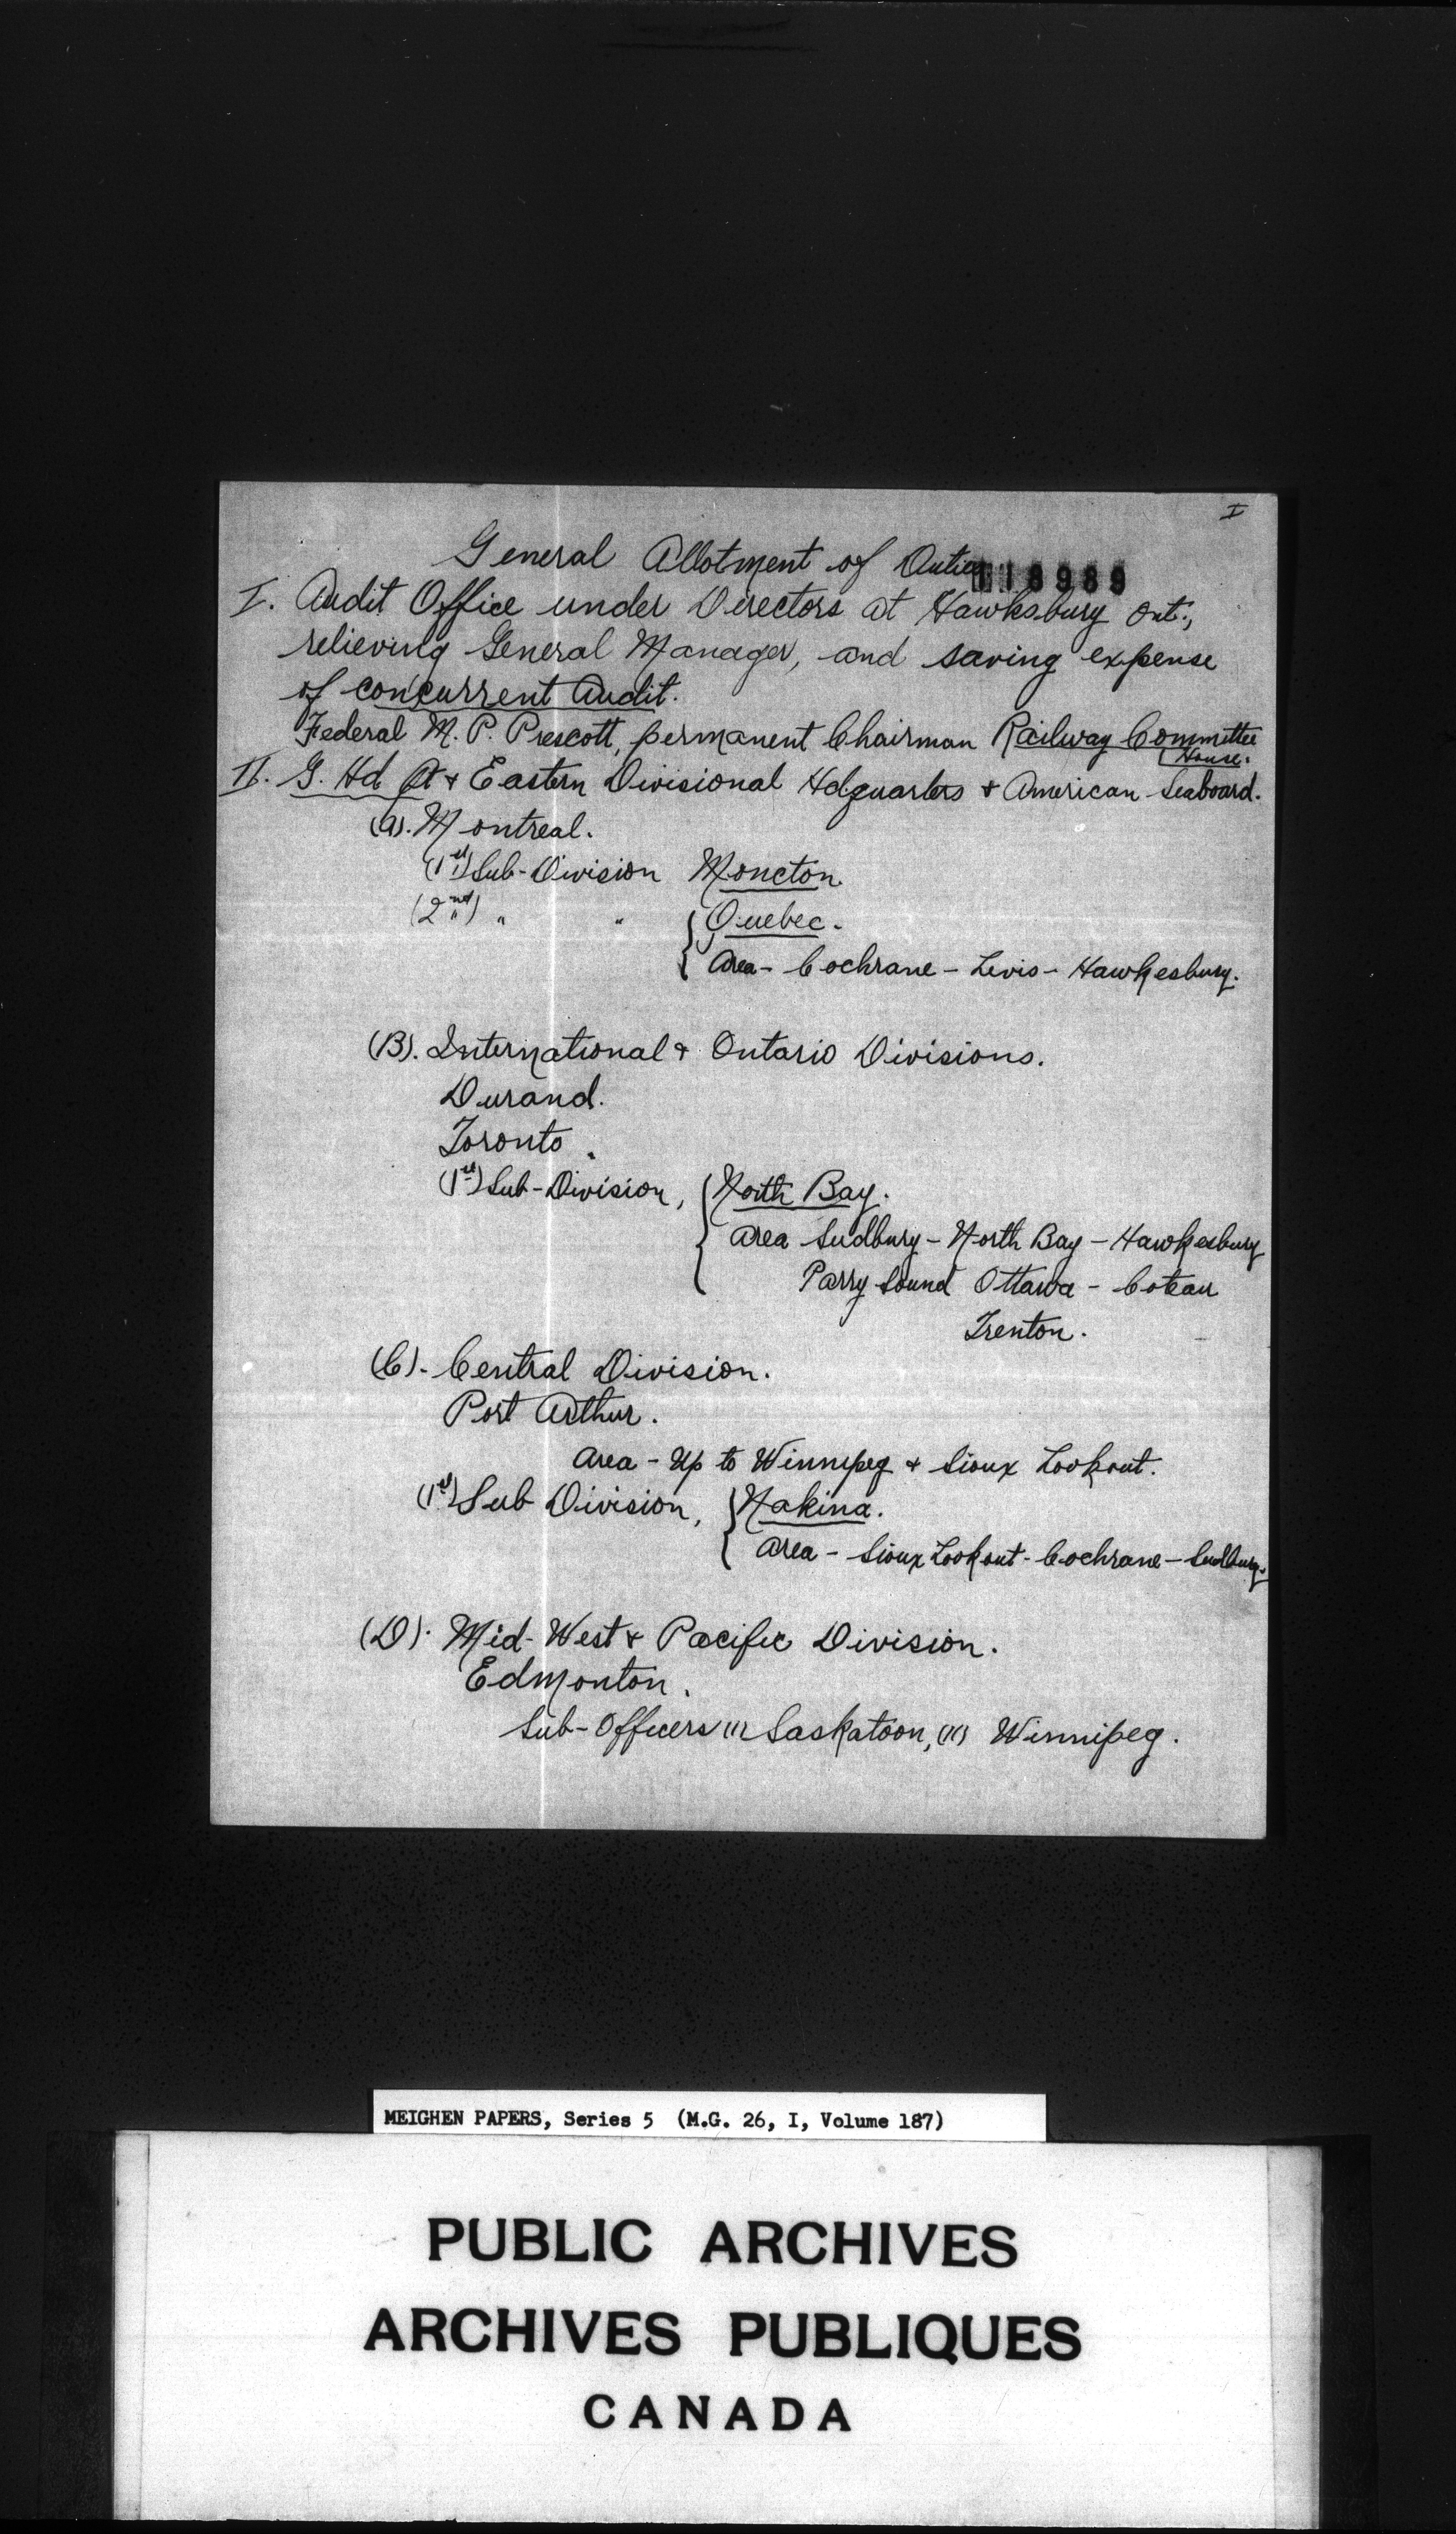 I
General Allotment of Duties
118989
I. Audit Office under Directors at Hawksbury Ont.,
relieving General Manager, and saving expense
of concurrent Audit.
Federal M. P. Prescott, permanent Chairman Railway Committee
House.
II. G. Hd Qt & Eastern Divisional Hdquarters & American Seaboard.
(a). Montreal.
(1st) Sub-Division Moncton.
(2nd) " " Quebec.
Area - Cochrane - Levis - Hawkesbury.
(B). International & Ontario Divisions.
Durand.
Toronto.
(1st) Sub-Division, North Bay.
Area Sudbury - North Bay - Hawkesbury
Parry Sound Ottawa - Coteau
Trenton.
(C). Central Division.
Port Arthur.
Area - Up to Winnipeg & Sioux Lookout.
(1st) Sub Division, Nakina.
Area - Sioux Lookout - Cochrane - Sudbury.
(D). Mid-West & Pacific Division.
Edmonton.
Sub-Officers (I) Saskatoon, (II) Winnipeg.
MEIGHEN PAPERS, Series 5 (M.G. 26, I, Volume 187)
PUBLIC ARCHIVES
ARCHIVES PUBLIQUES
CANADA